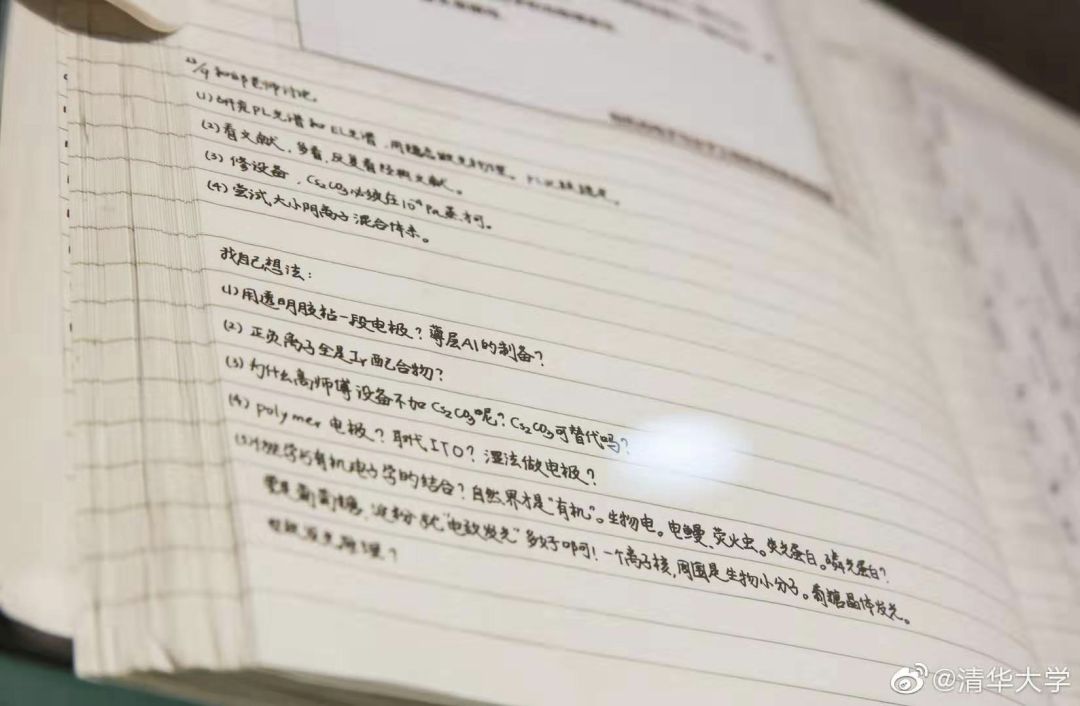 23/9 和邱老师讨论。
(1) 研究PL光谱和EL光谱,用稳态
(2) 看文献,多看,反复看经典文献。
(3) 修设备,Cs₂CO₃必须在10⁻⁴Pa蒸才可。
(4) 尝试大小阴离子混合体系。
我自己想法:
(1) 用透明胶粘一段电极?薄层Al的制备?
(2) 正负离子全是Ir配合物?
(3) 为什么高师傅设备不加Cs₂CO₃呢?Cs₂CO₃可替代吗?
(4) polymer电极?取代ITO?湿法做电极?
(5) 生物学与有机电子学的结合?自然界才是“有机”。生物电。电鳗、荧火虫。荧光蛋白。磷光蛋白?
要是葡萄糖、淀粉就“电致发光”多好啊!一个离子核,周围是生物小分子。葡糖晶体发光。
发光原理?
@清华大学